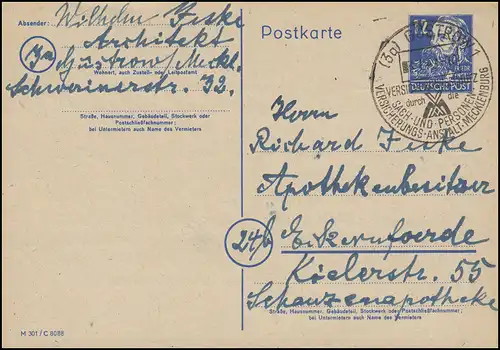 Absender: Wilhelm Fiske
Architekt
3a Güstrow/Meckl.
Wohnort, auch Zustell- oder Leitpostamt
Schwerinerstr. 32.
Straße, Hausnummer, Gebäudeteil, Stockwerk oder
Postschließfachnummer;
bei Untermietern auch Name des Vermieters
M 301 / C 8088
Postkarte
12
DEUTSCHE POST
(3a) GÜSTROW 1
durch die
SACH- UND PERSONEN-
VERSICHERUNGS-ANSTALT-MECKLENBURG
Herrn
Richard Fiske
Apothekenbesitzer
24b Eckernfoerde
Kielerstr. 55
Schanzenapotheke
Straße, Hausnummer, Gebäudeteil, Stockwerk oder Postschließfachnummer;
bei Untermietern auch Name des Vermieters